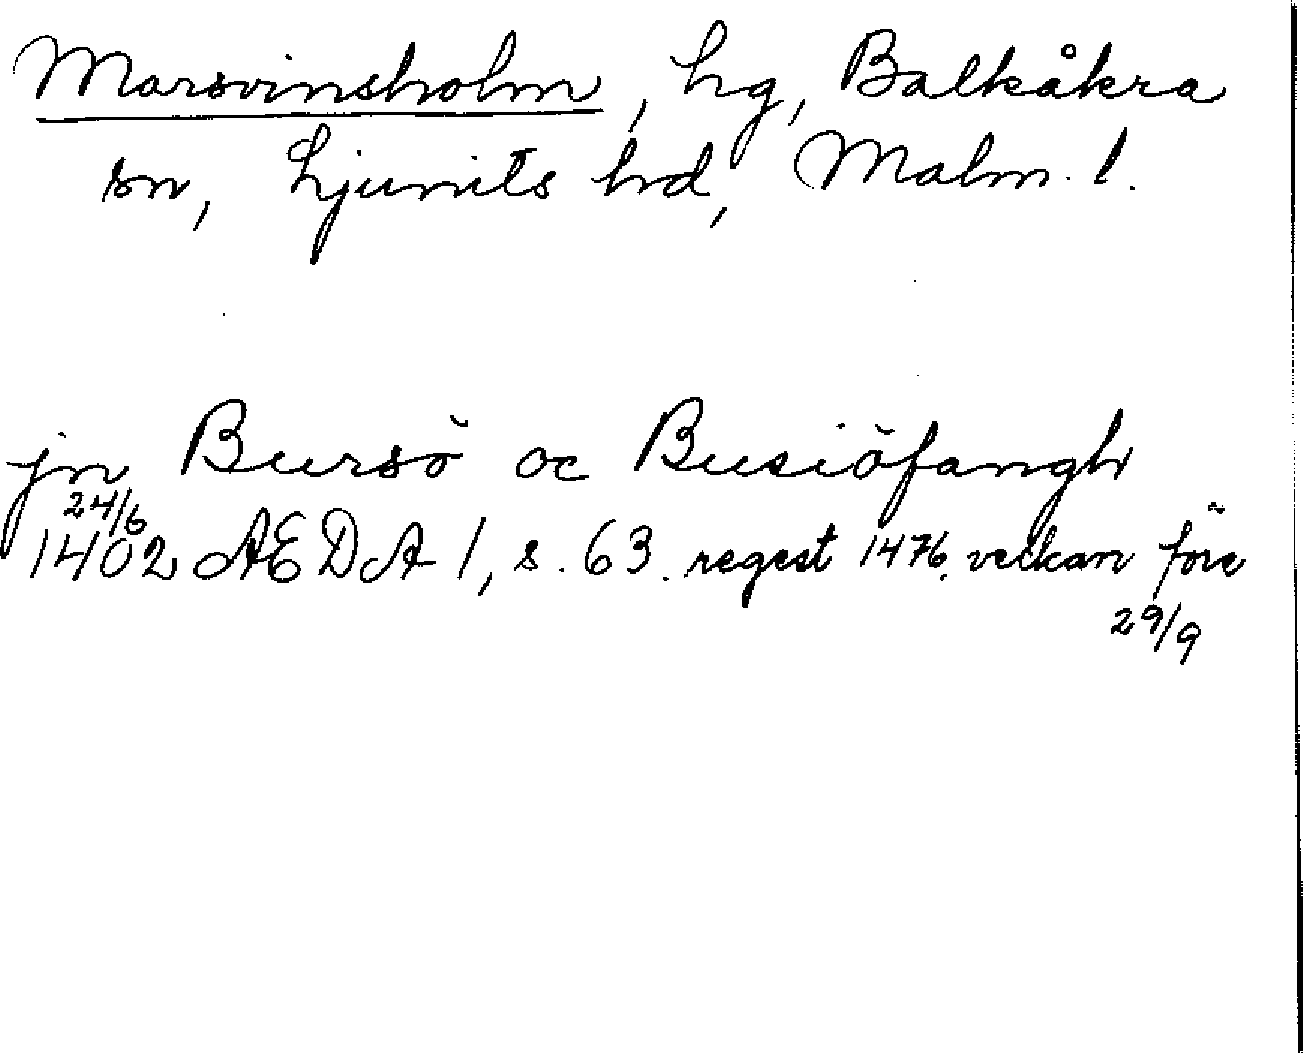 Marsvinsholm, hg, Balkåkra
sn, Ljunits hd, Malm. l.
jn Bursö oc Busiöfangh
24/6
1402 AEDA 1, s. 63. regest 1476, velkan före
29/9